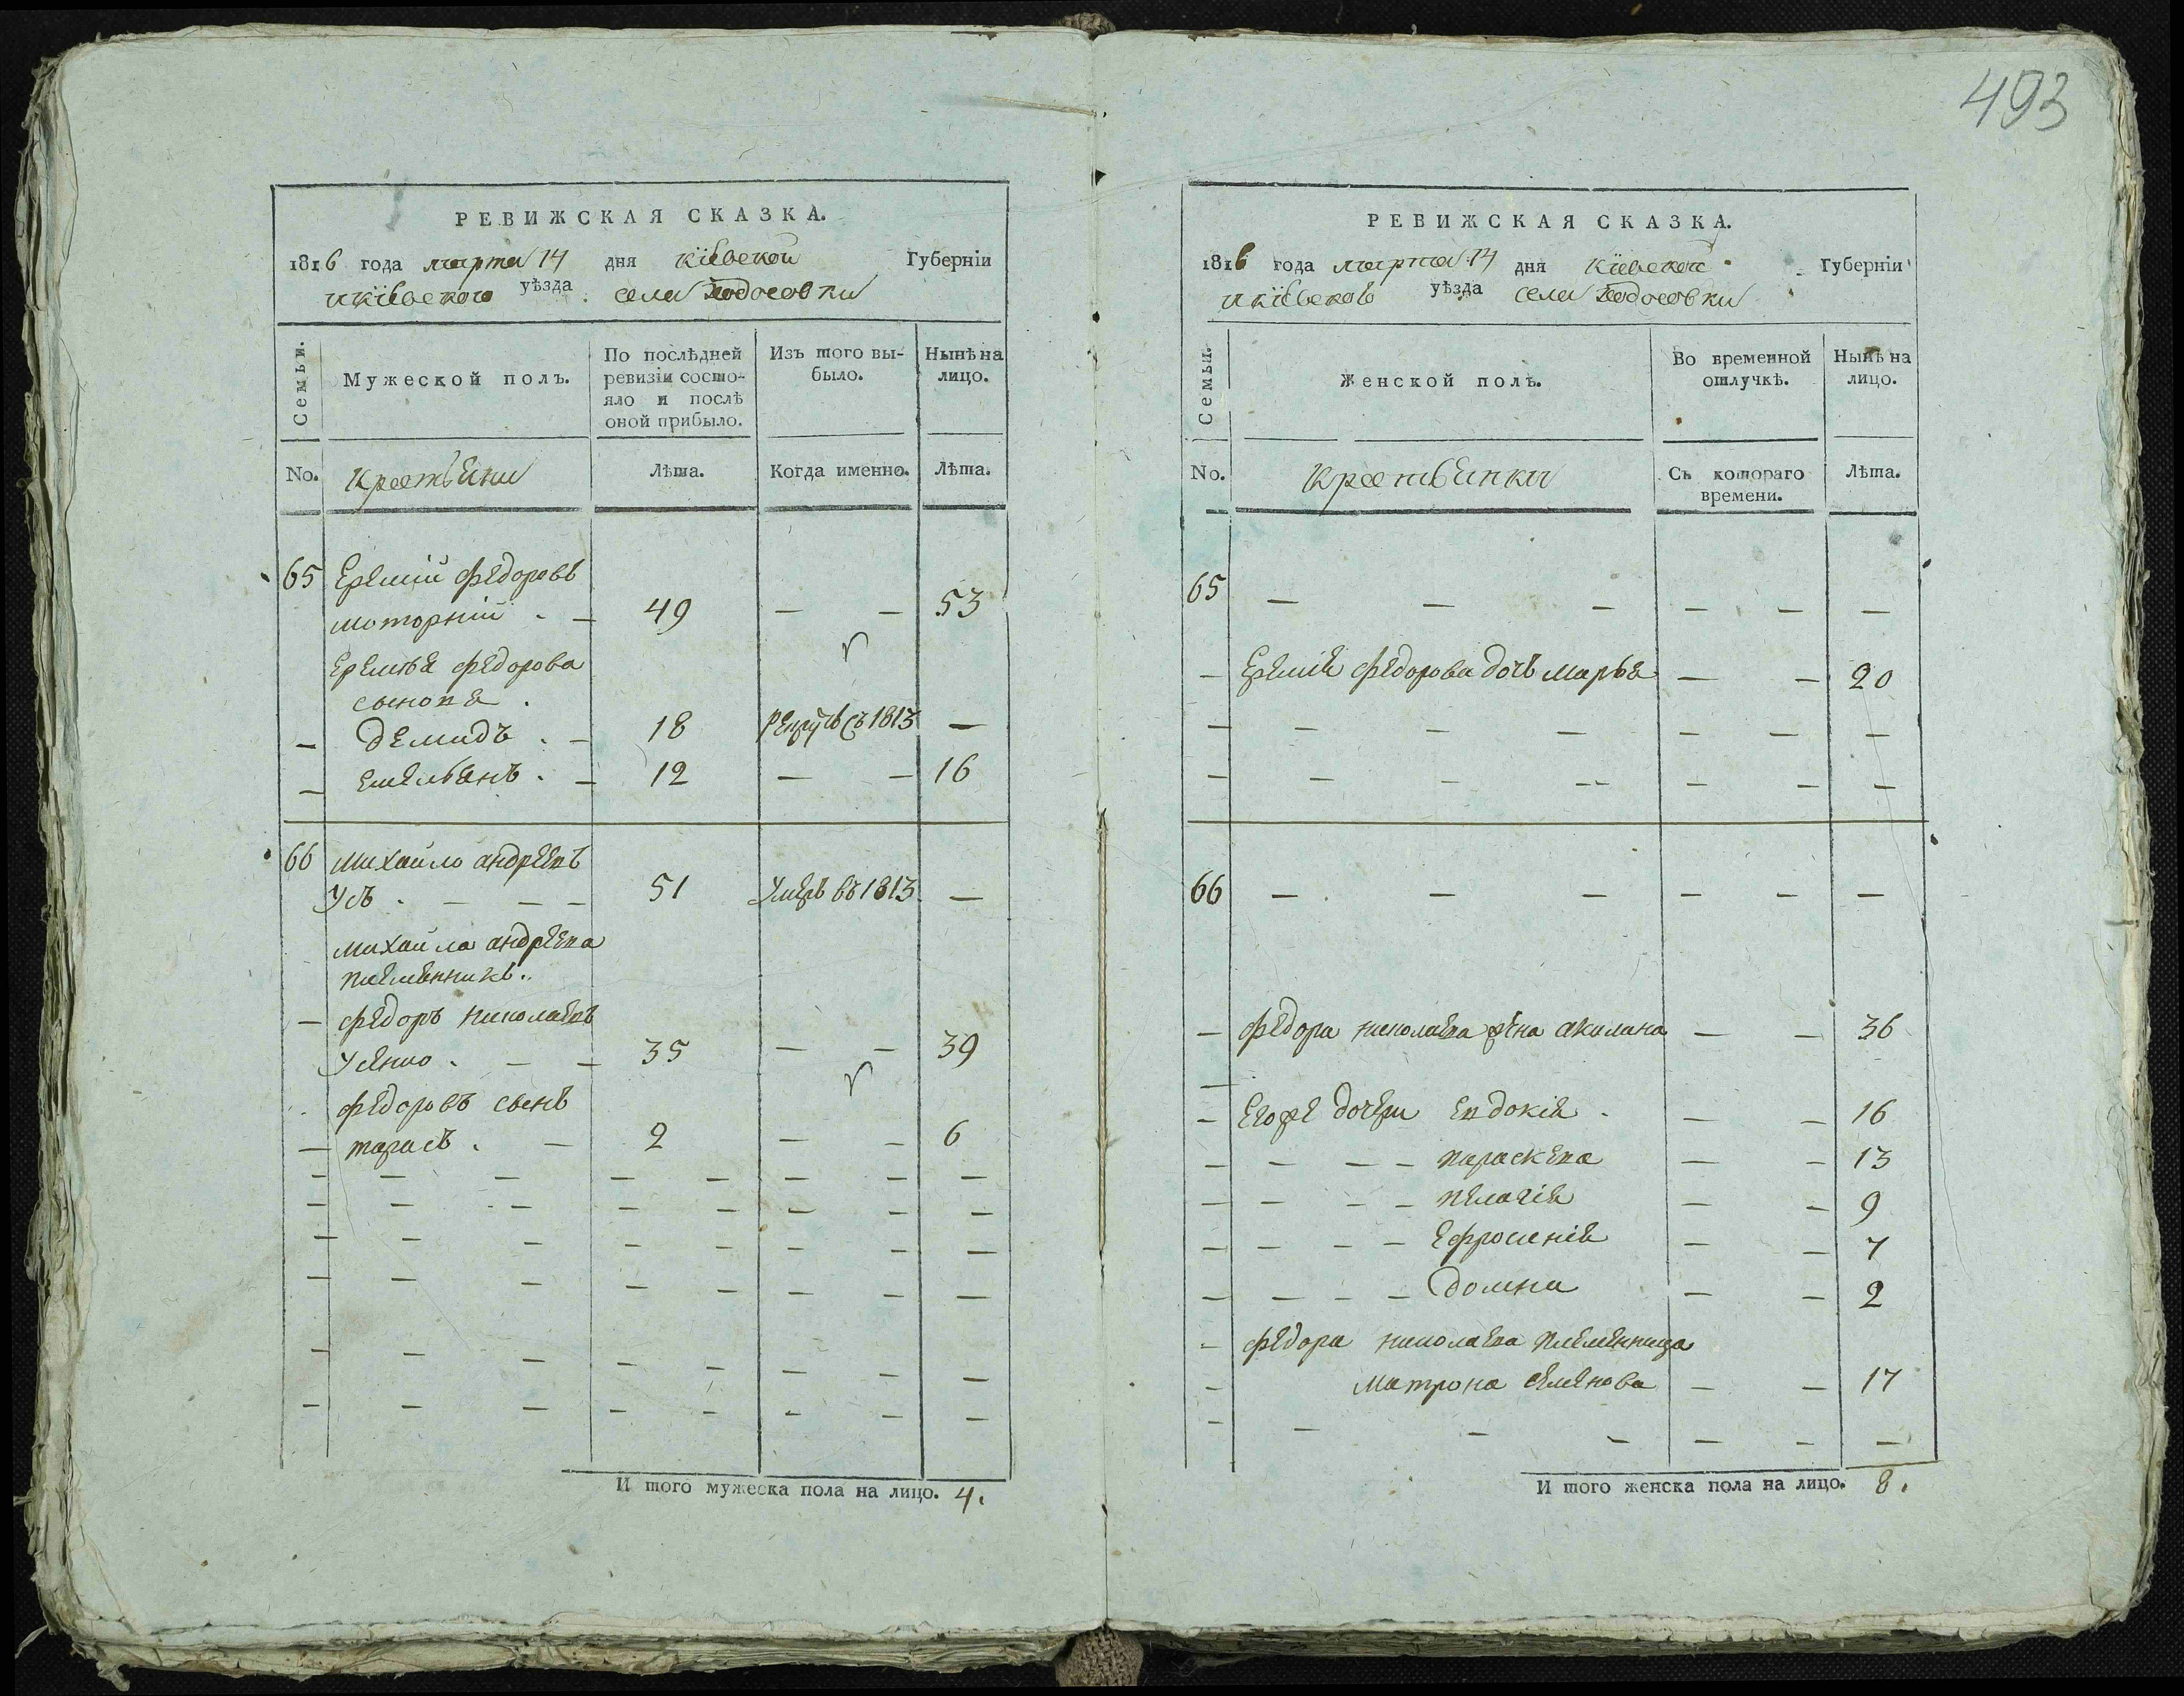 493
РЕВИЖСКАЯ СКАЗКА.
1816 года марта 14 дня кіевской Губерніи
икіевского уѣзда села Ходосовки
Семьи.
Мужеской полъ.
По послѣдней ревизіи состо-
яло и послѣ
оной прибыло.
Изъ того вы-
было.
Нынѣ на
лицо.
No. крестьяни Лѣта. Когда именно. Лѣта.
65 Еремій федоровъ
моторній - — 49 — — 53
Еремѣя федорова
сыновя
— демидъ - — 18 рекрутъ съ 1813 —
— емельянъ - — 12 — — 16
66 михайло андреевъ
Усъ - — — — 51 умеръ въ 1813 —
михайла андреева
племянникъ.
— федоръ николаевъ
Усенко - — — 35 — — 39
федоровъ сынъ
— тарасъ - — 2 — — 6
И того мужеска пола на лицо. 4.
РЕВИЖСКАЯ СКАЗКА.
1816 года марта 14 дня кіевской Губерніи
икіевского уѣзда села Ходосовки
Семьи.
Женской полъ.
Во временной
отлучкѣ.
Нынѣ на
лицо.
No. крестьянки Съ котораго
времени. Лѣта.
65 — — — — — —
— Еремія федорова дочь марья — — 20
66 — — — — — —
— федора николаева жена акилина — — 36
— Егоже дочери евдокія - — — 16
— — — — параскева — — 13
— — — — пелагія — — 9
— — — — ефросинія — — 7
— — — — домна — — 2
— федора николаева племянница
— матрона семенова — — 17
И того женска пола на лицо. 8.